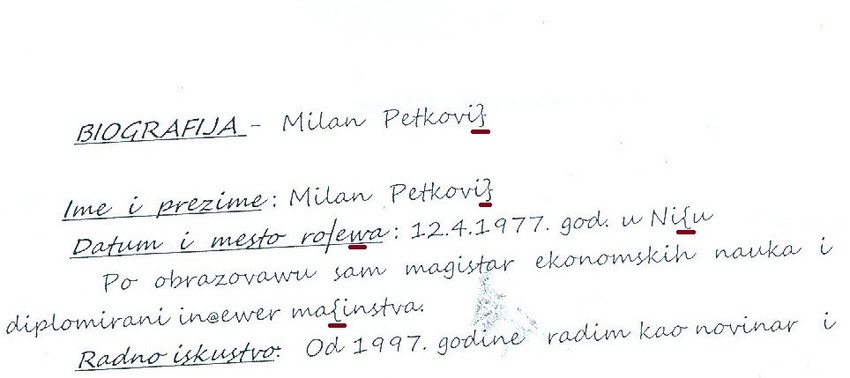 BIOGRAFIJA - Milan Petkovi}
Ime i prezime: Milan Petkovi}
Datum i mesto ro|ewa: 12.4.1977. god. u Ni{u
Po obrazovawu sam magistar ekonomskih nauka i
diplomirani in@ewer ma{instva.
Radno iskustvo: Od 1997. godine radim kao novinar i